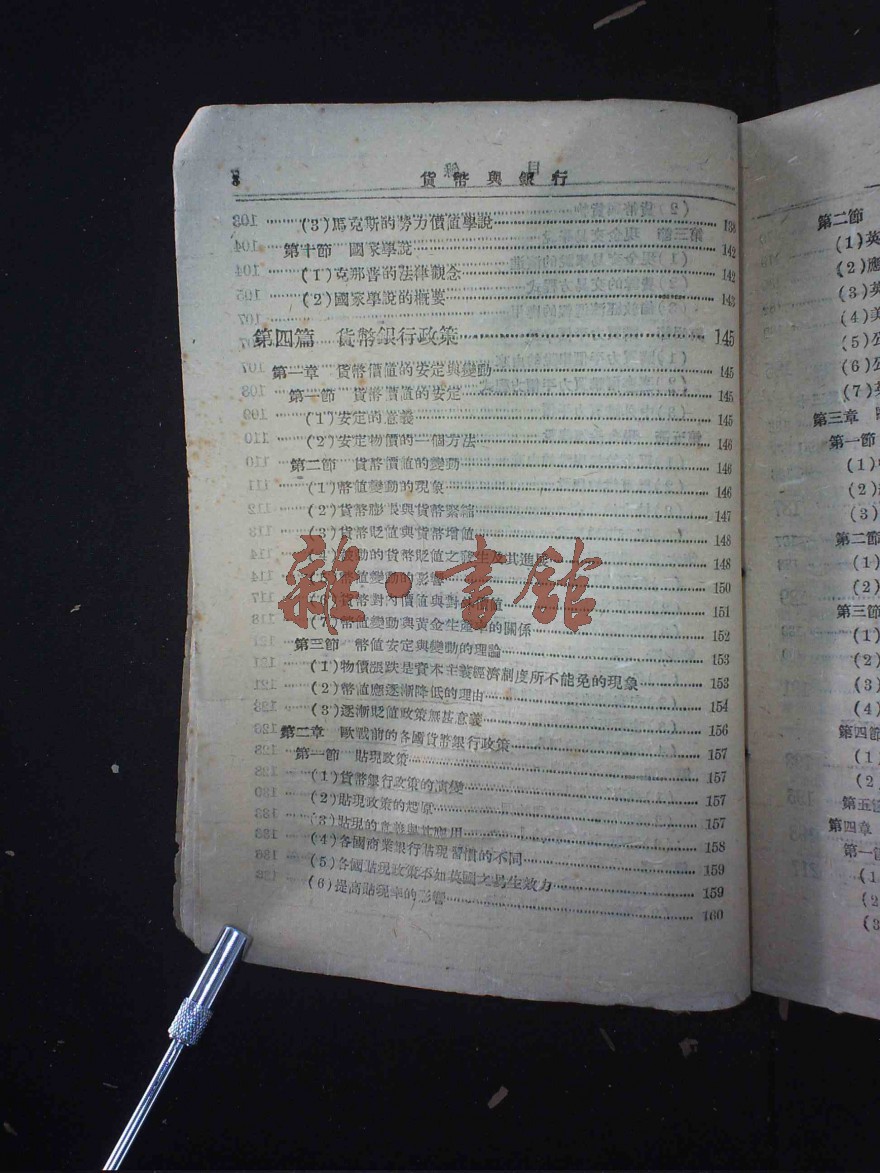 8
貨幣與銀行
(3)馬克斯的勞力價值學說 138
第十節 國家學說 142
(1)克那普的法律觀念 142
(2)國家學說的概要 143
第四篇 貨幣銀行政策 145
第一章 貨幣價值的安定與變動 145
第一節 貨幣價值的安定 145
(1)安定的意義 145
(2)安定物價的一個方法 146
第二節 貨幣價值的變動 146
(1)幣值變動的現象 146
(2)貨幣膨脹與貨幣緊縮 147
(3)貨幣貶值與貨幣增值 148
的貨幣貶值之發生及其進展 148
(5)幣值變動的影響 150
(6)貨幣對內價值與對外價值 151
(7)幣值變動與黃金生產率的關係 152
第三節 幣值安定與變動的理論 153
(1)物價漲跌是資本主義經濟制度所不能免的現象 153
(2)幣值應逐漸降低的理由 154
(3)逐漸貶值政策無甚意義 156
第二章 歐戰前的各國貨幣銀行政策 157
第一節 貼現政策 157
(1)貨幣銀行政策的演變 157
(2)貼現政策的起原 157
(3)貼現的意義與其應用 158
(4)各國商業銀行貼現習慣的不同 159
(5)各國貼現政策不如英國之易生效力 159
(6)提高貼現率的影響 160
雜·書館
第二節
(1)英
(2)應
(3)英
(4)美
(5)公
(6)公
(7)英
第三章
第一節
(1)
(2)
(3)
第二節
(1)
(2)
第三節
(1)
(2)
(3)
(4)
第四節
(1)
(2)
第五節
第四章
第一節
(1
(2
(3